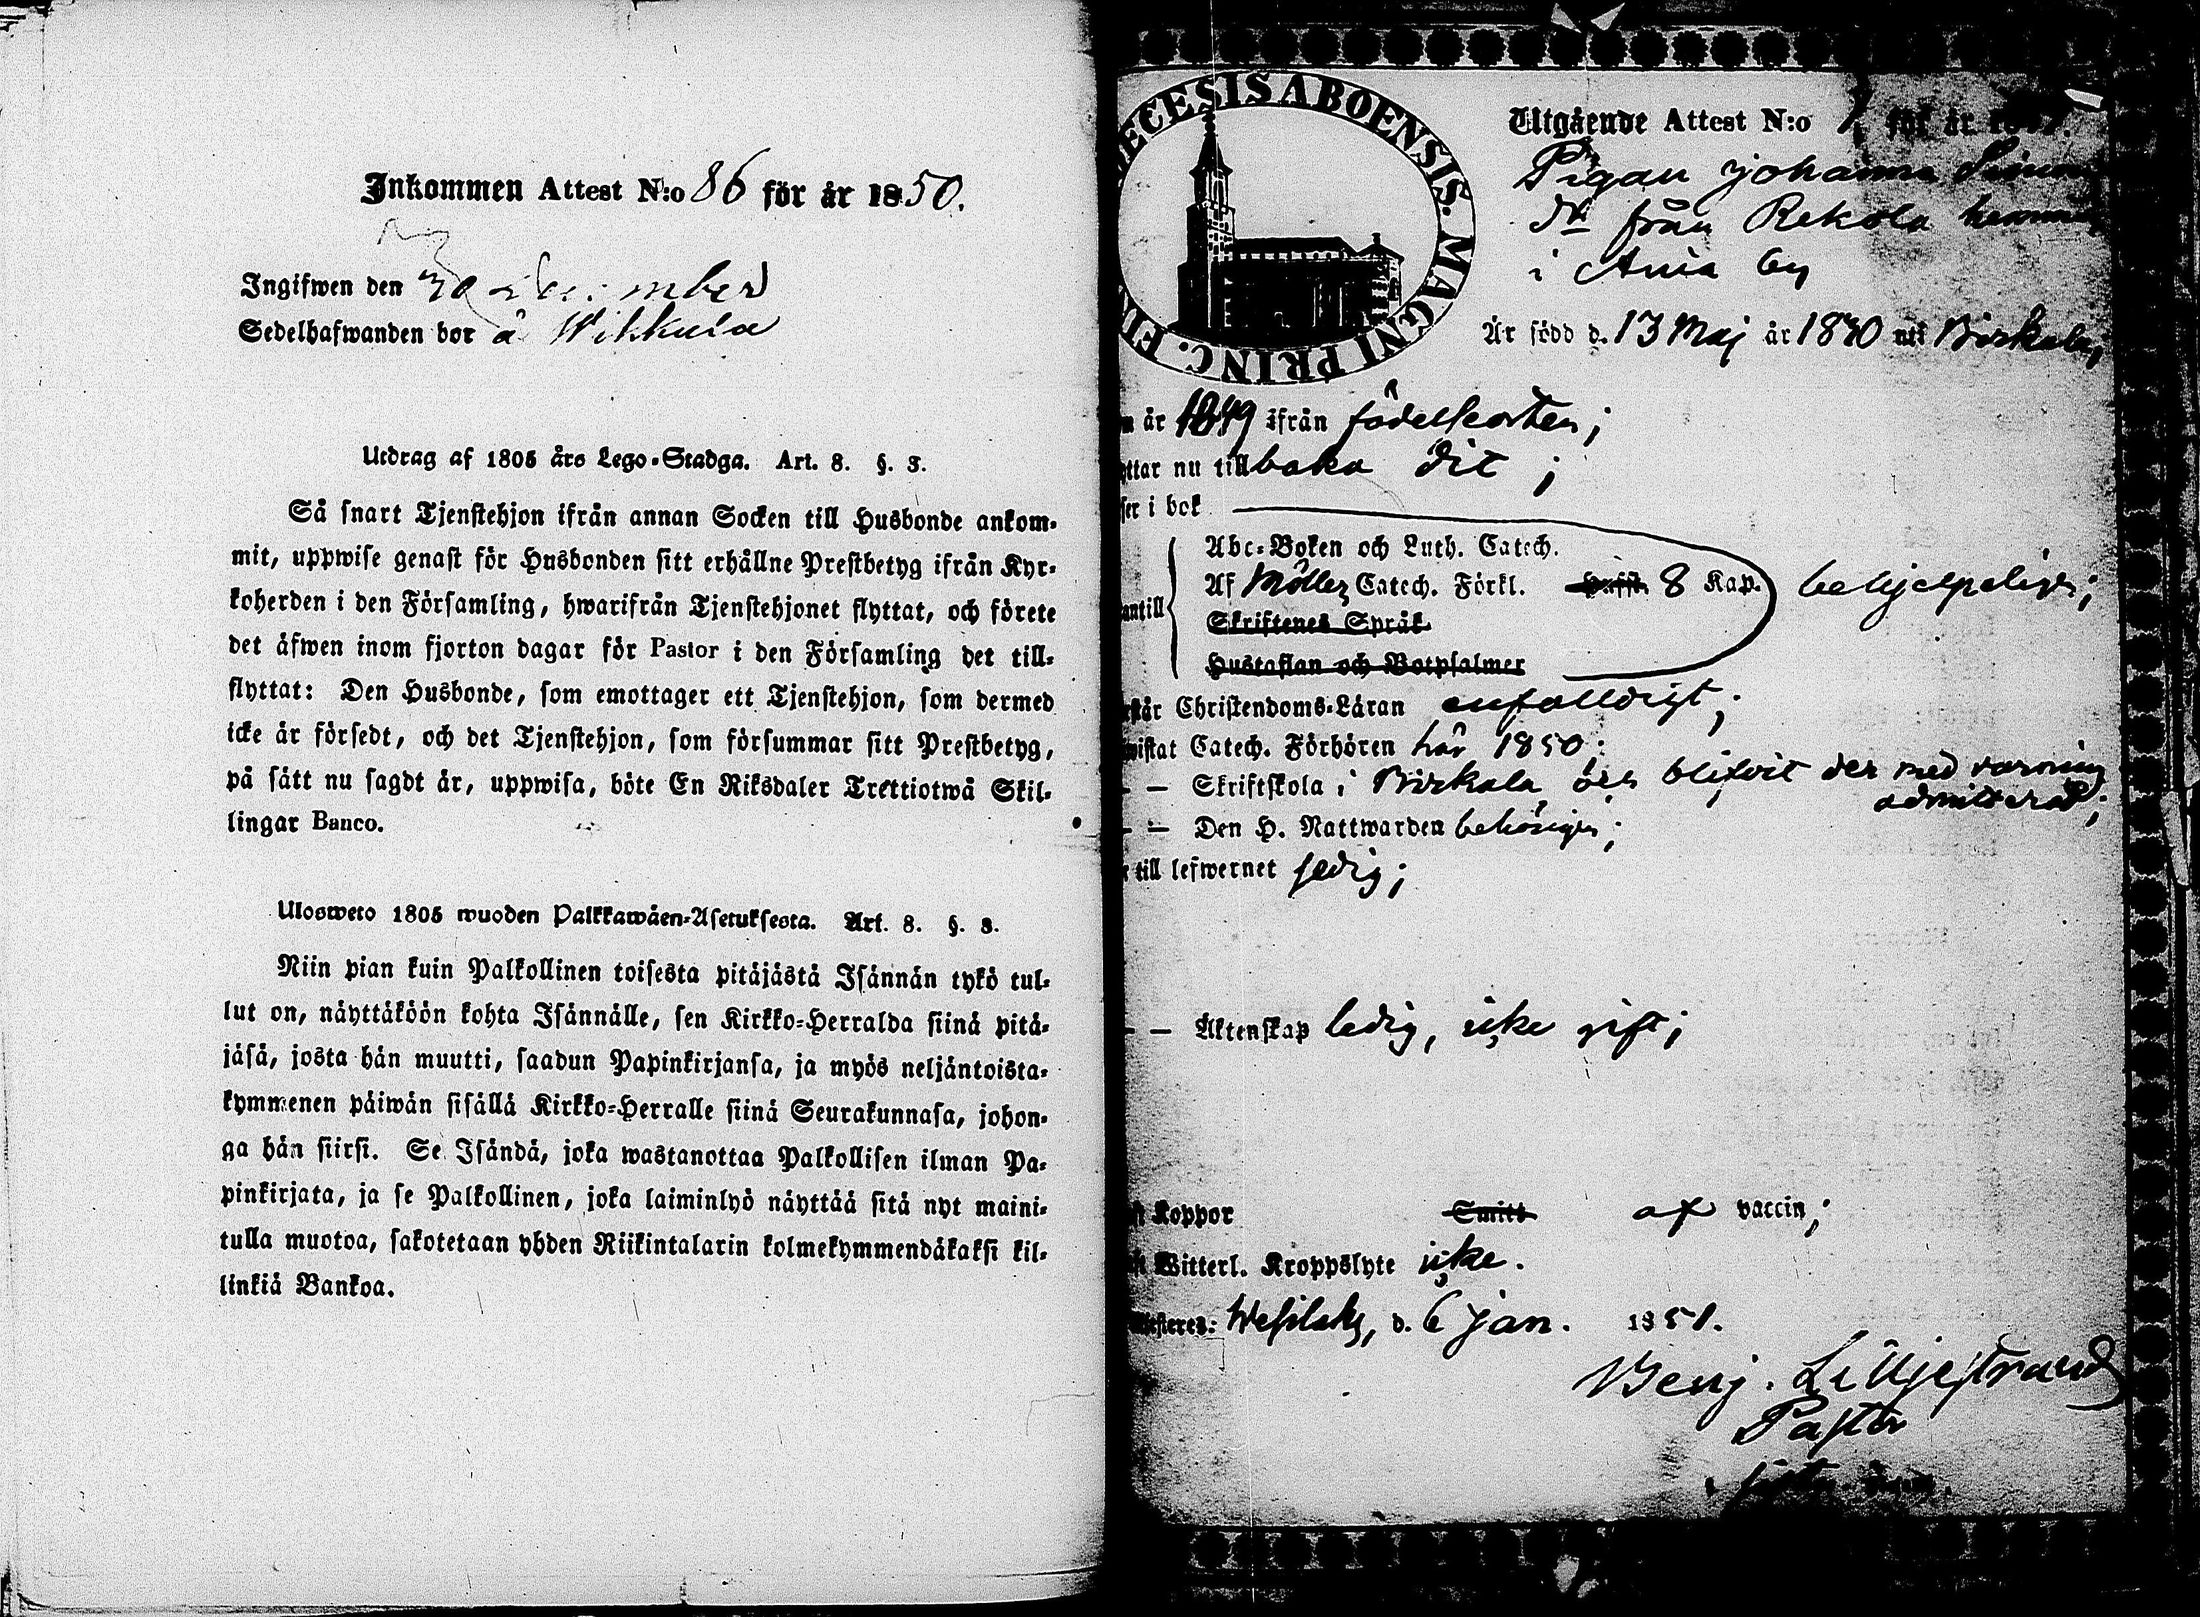 Inkommen Attest N:o 86 för år 1850.
Ingifwen den 30 december
Sedelhafwanden bor å Wikkula
Utdrag af 1805 års Lego-Stadga. Art. 8. §. 3.
Så snart Tjenstehjon ifrån annan Socken till Husbonde ankom-
mit, uppwise genast för Husbonden sitt erhållne Prestbetyg ifrån Kyr-
koherden i den Församling, hwarifrån Tjenstehjonet flyttat, och förete
det äfwen inom fjorton dagar för Pastor i den Församling det till-
flyttat: Den Husbonde, som emottager ett Tjenstehjon, som dermed
icke är försedt, och det Tjenstehjon, som försummar sitt Prestbetyg,
på sätt nu sagdt är, uppwisa, böte En Riksdaler Trettiotwå Skil-
lingar Banco.
Ulosweto 1805 wuoden Palkkawäen-Asetuksesta. Art. 8. §. 3.
Niin pian kuin Palkollinen toisesta pitäjästä Isännän tykö tul-
lut on, näyttäköön kohta Isännälle, sen Kirkko-Herralda siinä pitä-
jäsä, josta hän muutti, saadun Papinkirjansa, ja myös neljäntoista-
kymmenen päiwän sisällä Kirkko-Herralle siinä Seurakunnasa, johon-
ga hän siirsi. Se Isändä, joka wastanottaa Palkollisen ilman Pa-
pinkirjata, ja se Palkollinen, joka laiminlyö näyttää sitä nyt maini-
tulla muotoa, sakotetaan yhden Riikintalarin kolmekymmendäkaksi kil-
linkiä Bankoa.
ECESIS ABOENSIS. MAGNI PRINC. FI
Utgående Attest N:o 1 för år
Pigan Johanna Simons
dr från Rekola hemman
i Ania by
Är född d. 13 Maj år 1830 uti Birkala,
år 1849 ifrån födelseorten;
ttar nu tillbaka dit;
ser i bok
Abc-Boken och Luth. Catech.
Af Möllers Catech. Förkl. Hufst. 8 Kap. behjelpeligen;
antill
Skriftenes Språk
Hustaflan och Botpsalmer
står Christendoms-Läran enfalldigt;
wistat Catech. Förhören här 1850;
— — Skriftskola i Birkala och blifvit der med varning
admitterad;
— — Den H. Nattwarden behörigen;
till lefwernet sedig;
— — Äktenskap ledig, icke gift;
Koppor Smitt af vaccin;
Witterl. Kroppslyte icke.
Attesteres: Wesilaks, d. 6 Jan. 1851.
Benj. Lilljestrand
Pastor